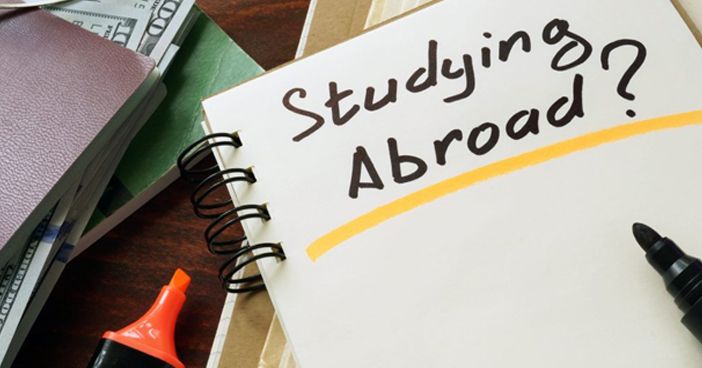 Studying
Abroad?
100